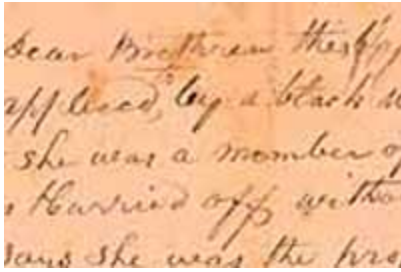 Dear Brethren
applied, by a black
she was a member of
Hurried off witho
says she was the pro